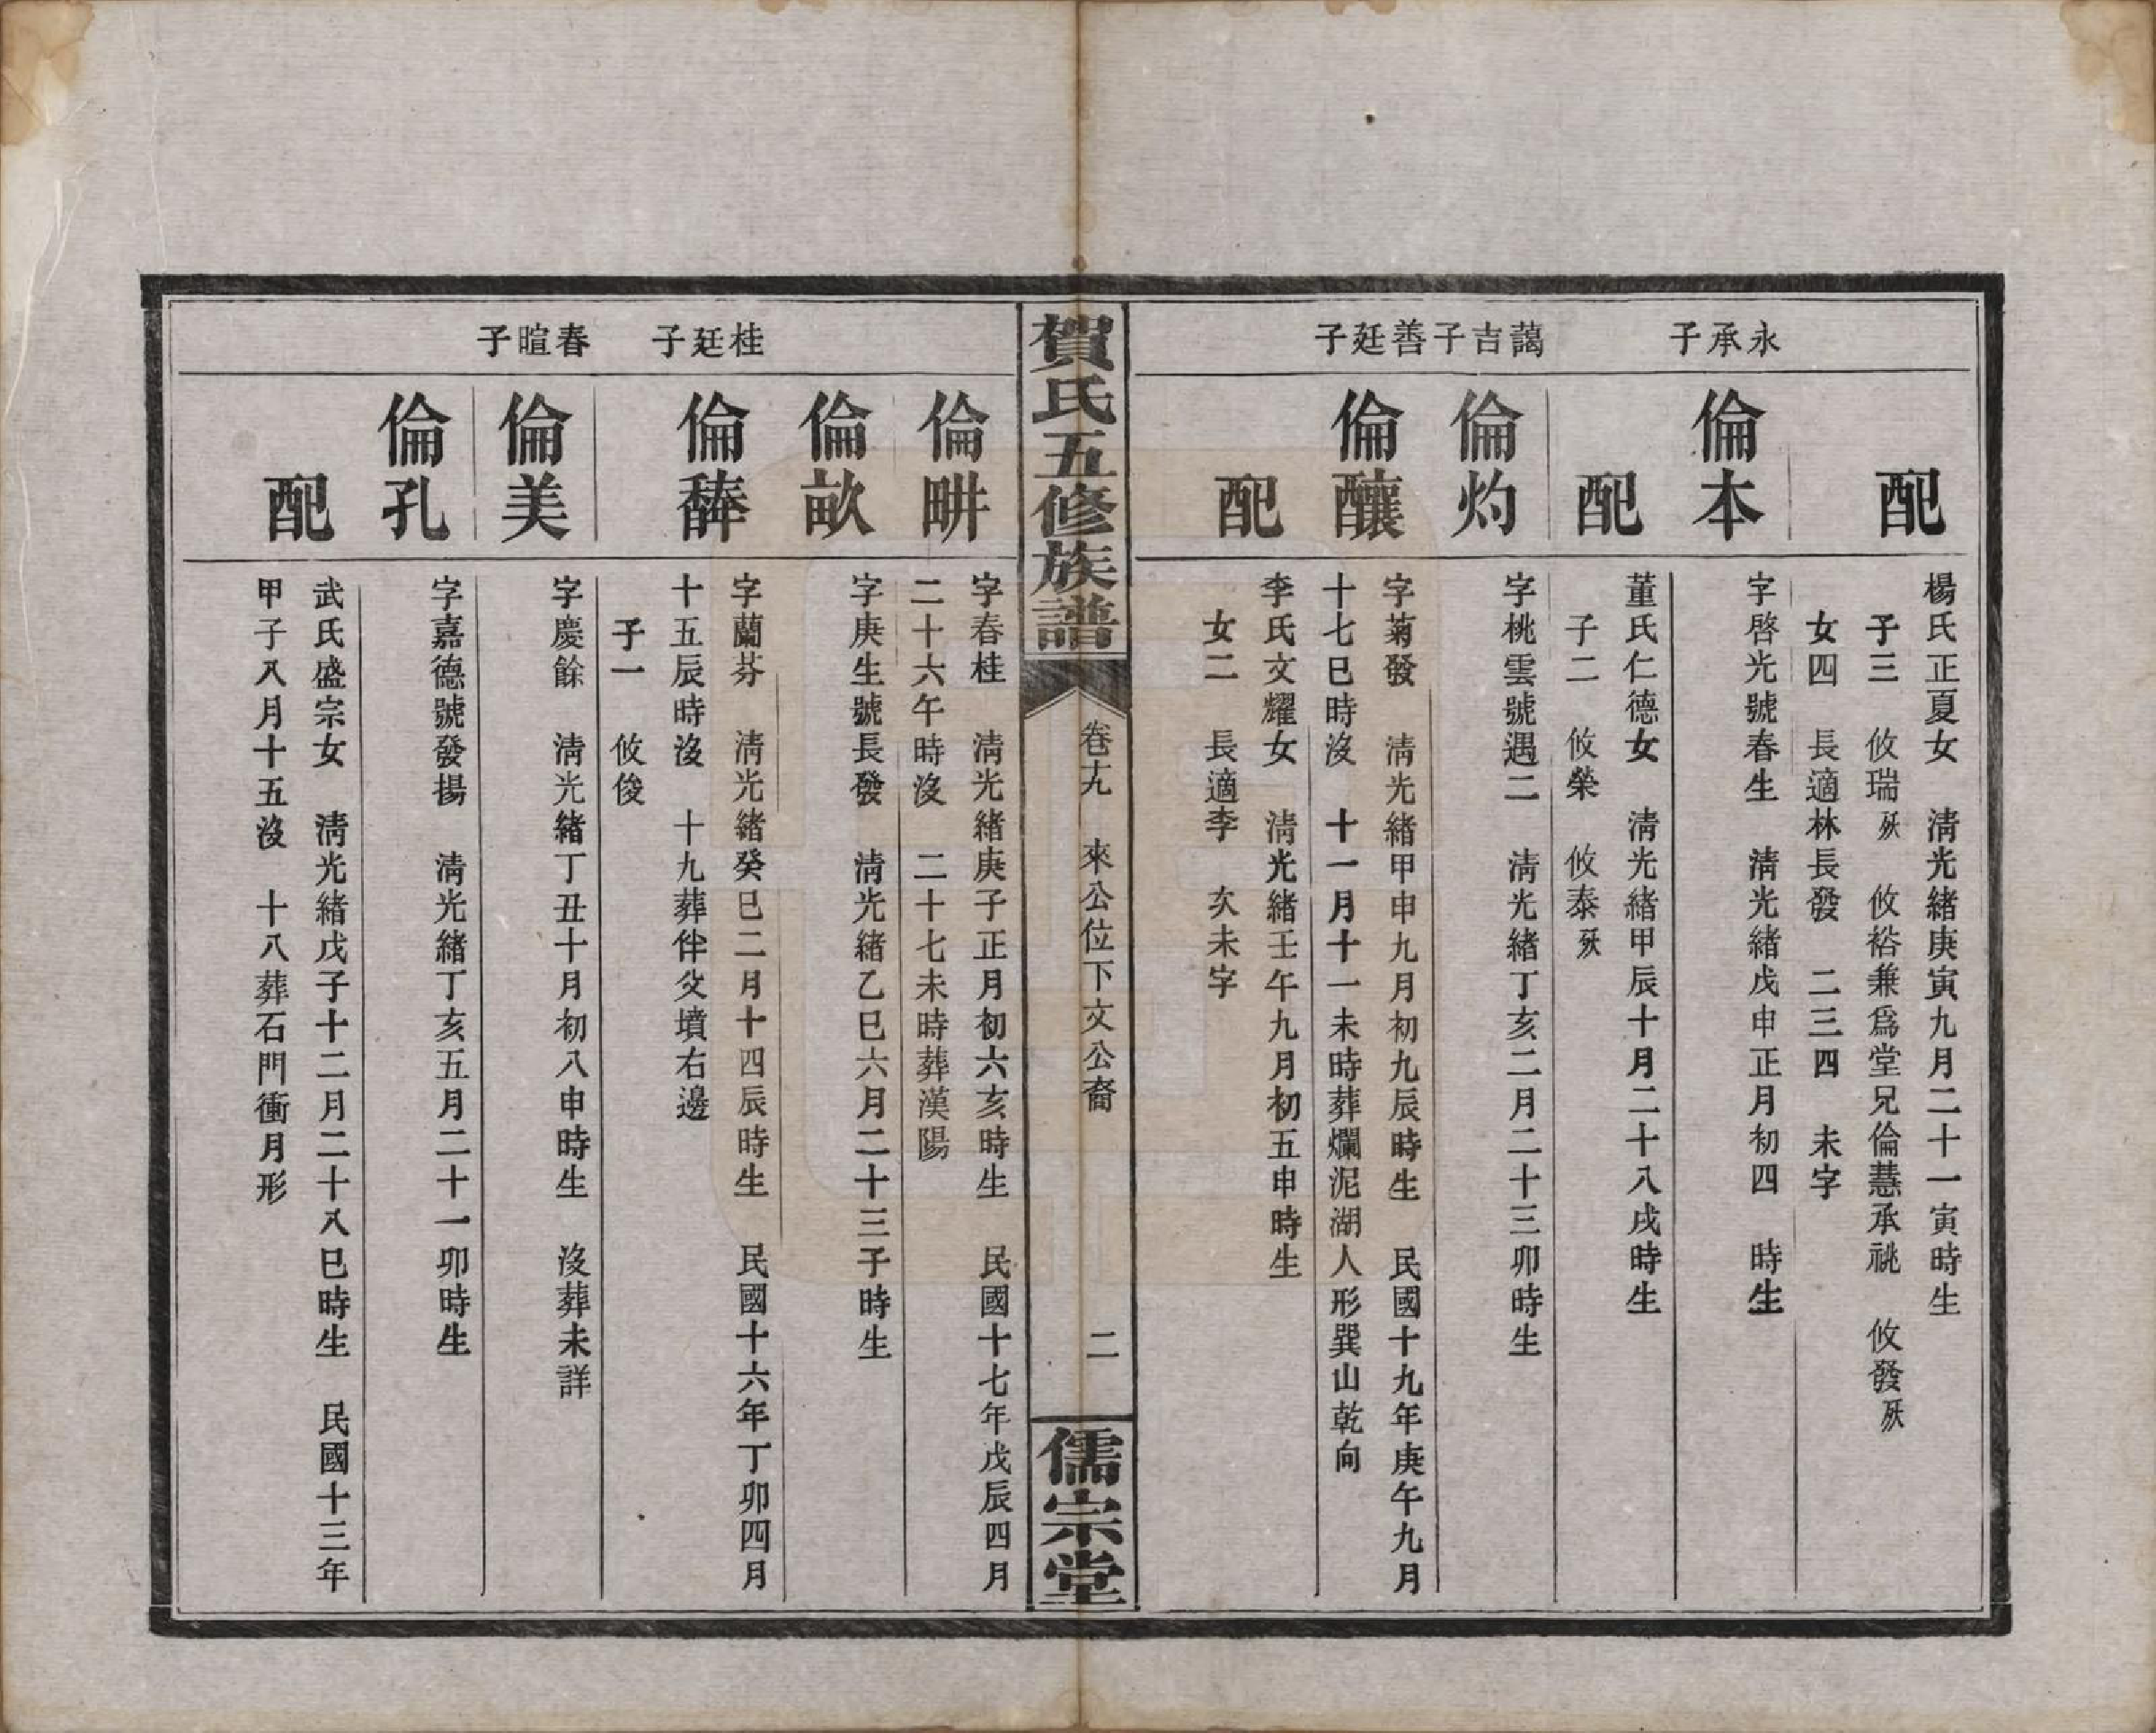 永承子
藹吉子善廷子
配
楊氏正夏女　淸光緒庚寅九月二十一寅時生
子三　攸瑞殀　攸裕兼爲堂兄倫慧承祧　攸發殀
女四　長適林長發　二三四　未字
倫本
字啓光號春生　淸光緒戊申正月初四　時生
配
董氏仁德女　淸光緒甲辰十月二十八戌時生
子二　攸榮　攸泰殀
倫灼
字桃雲號遇二　淸光緒丁亥二月二十三卯時生
倫釀
字菊發　淸光緒甲申九月初九辰時生　民國十九年庚午九月
十七巳時沒　十一月十一未時葬爛泥湖人形巽山乾向
配
李氏文耀女　淸光緒壬午九月初五申時生
女二　長適李　次未字
賀氏五修族譜
卷十九　來公位下文公裔　二
儒宗堂
桂廷子
春暄子
倫畊
字春桂　淸光緒庚子正月初六亥時生　民國十七年戊辰四月
二十六午時沒　二十七未時葬漢陽
倫畝
字庚生號長發　淸光緒乙巳六月二十三子時生
倫馡
字蘭芬　淸光緒癸巳二月十四辰時生　民國十六年丁卯四月
十五辰時沒　十九葬伴父墳右邊
子一　攸俊
倫美
字慶餘　淸光緒丁丑十月初八申時生　沒葬未詳
倫孔
字嘉德號發揚　淸光緒丁亥五月二十一卯時生
配
武氏盛宗女　淸光緒戊子十二月二十八巳時生　民國十三年
甲子八月十五沒　十八葬石門衝月形